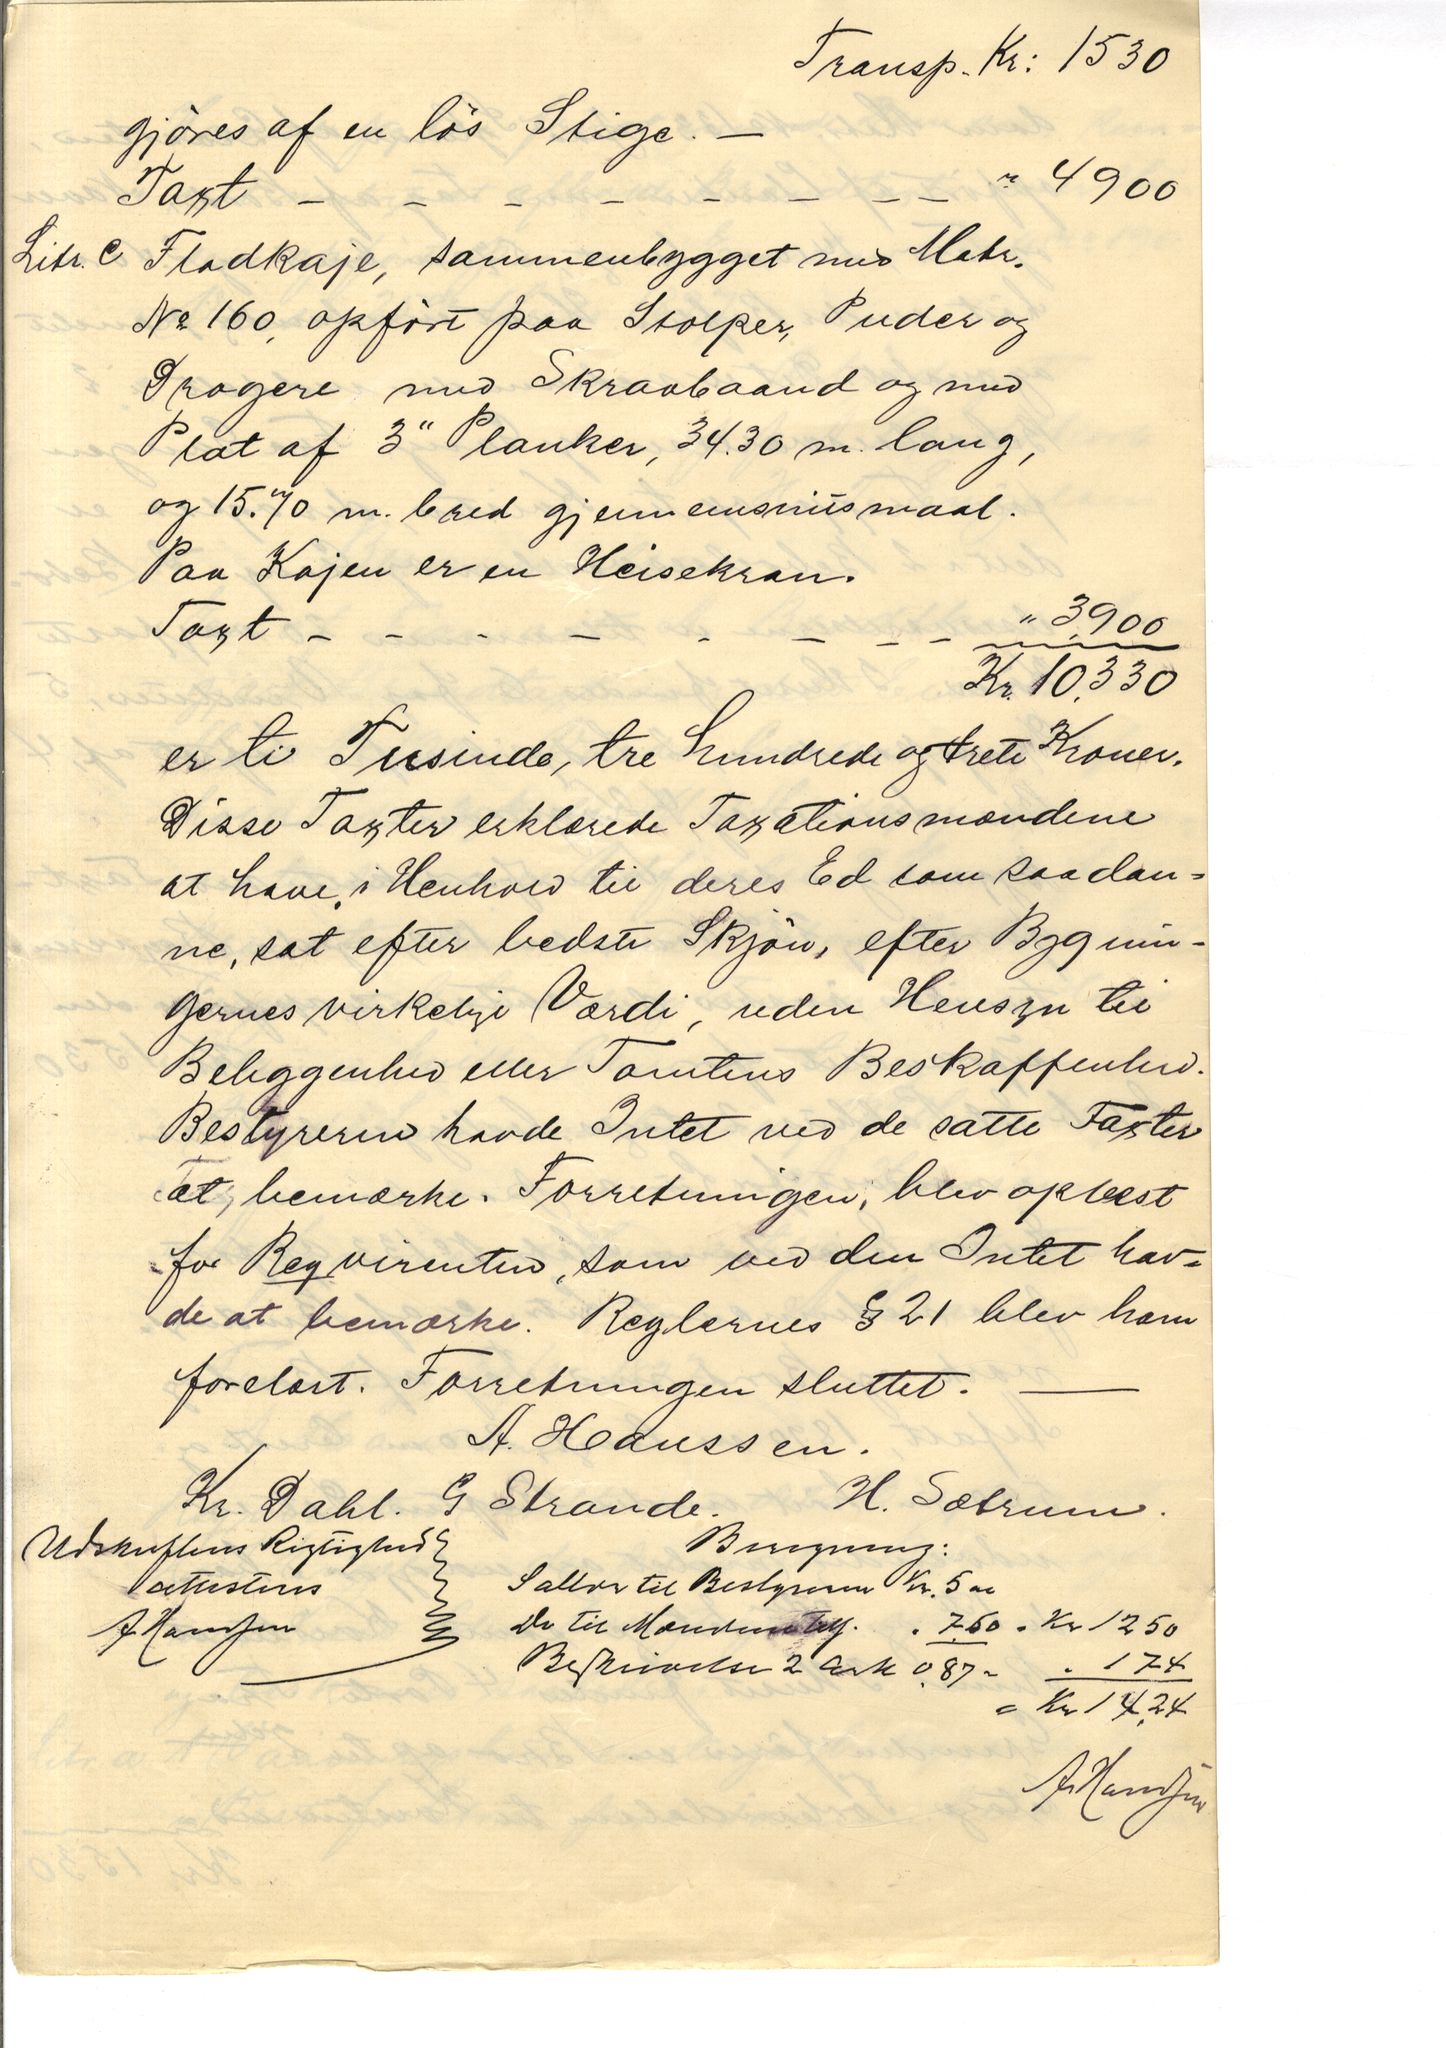 Transp. Kr: 1530
gjöres af en lös Stige. —
Taxt — — — — — — — — " 4900
Litr. C Flodkaje, sammenbygget med Matr.
No 160, opfört paa Stolper, Puder og
Dragere med Skraabaand og med
Plat af 3" Planker, 34.30 m. lang,
og 15.70 m. bred gjennemsnitsmaal.
Paa Kajen er en Heisekran.
Taxt — — — — — — — — " 3900
Kr. 10,330
er ti Tusinde, tre hundrede og treti Kroner.
Disse Taxter erklærede Taxationsmændene
at have, i Henhold til deres Ed som saadan-
ne, sat efter bedste Skjön, efter Bygnin-
gernes virkelige Værdi, uden Hensyn til
Beliggenhed eller Tomtens Beskaffenhed.
Bestyreren havde Intet ved de satte Taxter
at bemærke. Forretningen, blev oplæst
for Reqvirenten, som ved den Intet hav-
de at bemærke. Reglernes § 21 blev ham
forelæst. Forretningen sluttet. —
A. Hanssen.
Kr. Dahl. G Strande. H. Sætrum.
Udskriftens Rigtighed
attesteres
A Hanssen
Beregning:
Sallær til Bestyreren Kr. 5 00
Do til Mændene " 7.50 " Kr 12 50
Beskrivelse 2 Ark 0,87 " " 1 74
= Kr 14,24
A. Hanssen